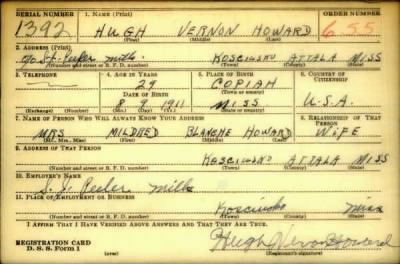 SERIAL NUMBER 1. NAME (Print) ORDER NUMBER
1392 HUGH VERNON HOWARD 655
(First) (Middle) (Last)
2. ADDRESS (Print)
Mills KOSCIUSKO ATTALA MISS
(Number and street or R. F. D. number) (Town) (County) (State)
3. TELEPHONE 4. AGE IN YEARS 5. PLACE OF BIRTH 6. COUNTRY OF CITIZENSHIP
29 COPIAH
DATE OF BIRTH (Town or county)
8 9 1911 MISS U.S.A.
(Exchange) (Number) (Mo.) (Day) (Yr.) (State or country)
7. NAME OF PERSON WHO WILL ALWAYS KNOW YOUR ADDRESS 8. RELATIONSHIP OF THAT PERSON
MRS MILDRED BLANCHE HOWARD WIFE
(Mr., Mrs., Miss) (First) (Middle) (Last)
9. ADDRESS OF THAT PERSON
KOSCIUSKO ATTALA MISS
(Number and street or R. F. D. number) (Town) (County) (State)
10. EMPLOYER'S NAME
Mills
11. PLACE OF EMPLOYMENT OR BUSINESS
Kosciusko Miss
(Number and street or R. F. D. number) (Town) (County) (State)
I AFFIRM THAT I HAVE VERIFIED ABOVE ANSWERS AND THAT THEY ARE TRUE.
REGISTRATION CARD
D. S. S. Form 1 Hugh Vernon Howard
(Registrant's signature)